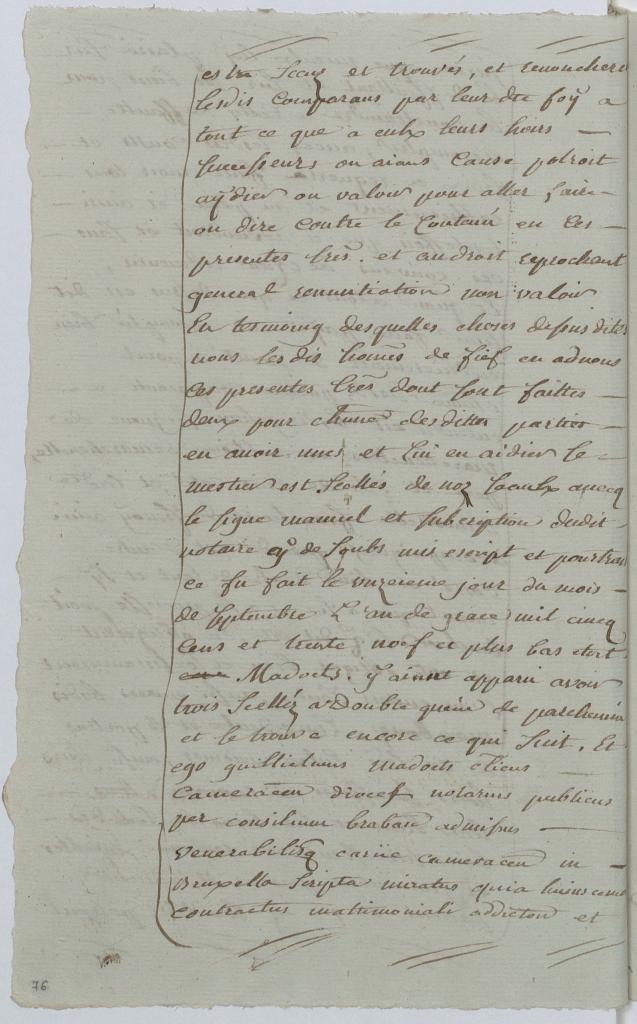 estre sceus et trouvés, et renoncher
lesdis comparans par leur dte foÿ a
tout ce que a eulx leurs hoirs —
successeurs ou aians cause polroit
aÿdier ou valoir pour aller faire —
ou dire contre le contenu en ces —
presentes lrēs. et au droit reprochant
general renuntiation non valoir
En tesmoing desquelles choses dessus dites
nous lesdis homēs de fief en avons
ces presentes lrēs dont sont faittes —
deux pour chūne desdittes parties —
en avoir une et lui en aidier le —
mestier est scellés de noz seaulx avecq
le signe manuel et subscription dudit
notaire cÿ de soubs mis escript et pourtrait
ce fu fait le unzeieme jour du mois —
de septembre L'an de grace mil cincq
cens et trente noef et plus bas etoit
Madoets. y aiant apparu avoir
trois scellez a double queüe de parchemin
et se trouve encore ce qui suit. Et
ego guillielmus madoets cliens —
Cameracen dioces notarius publicus
per consilium braban admissus —
venerabilisq curiæ cameracen in —
Bruxella scripta quia huius
contractus matrimoniali et
76